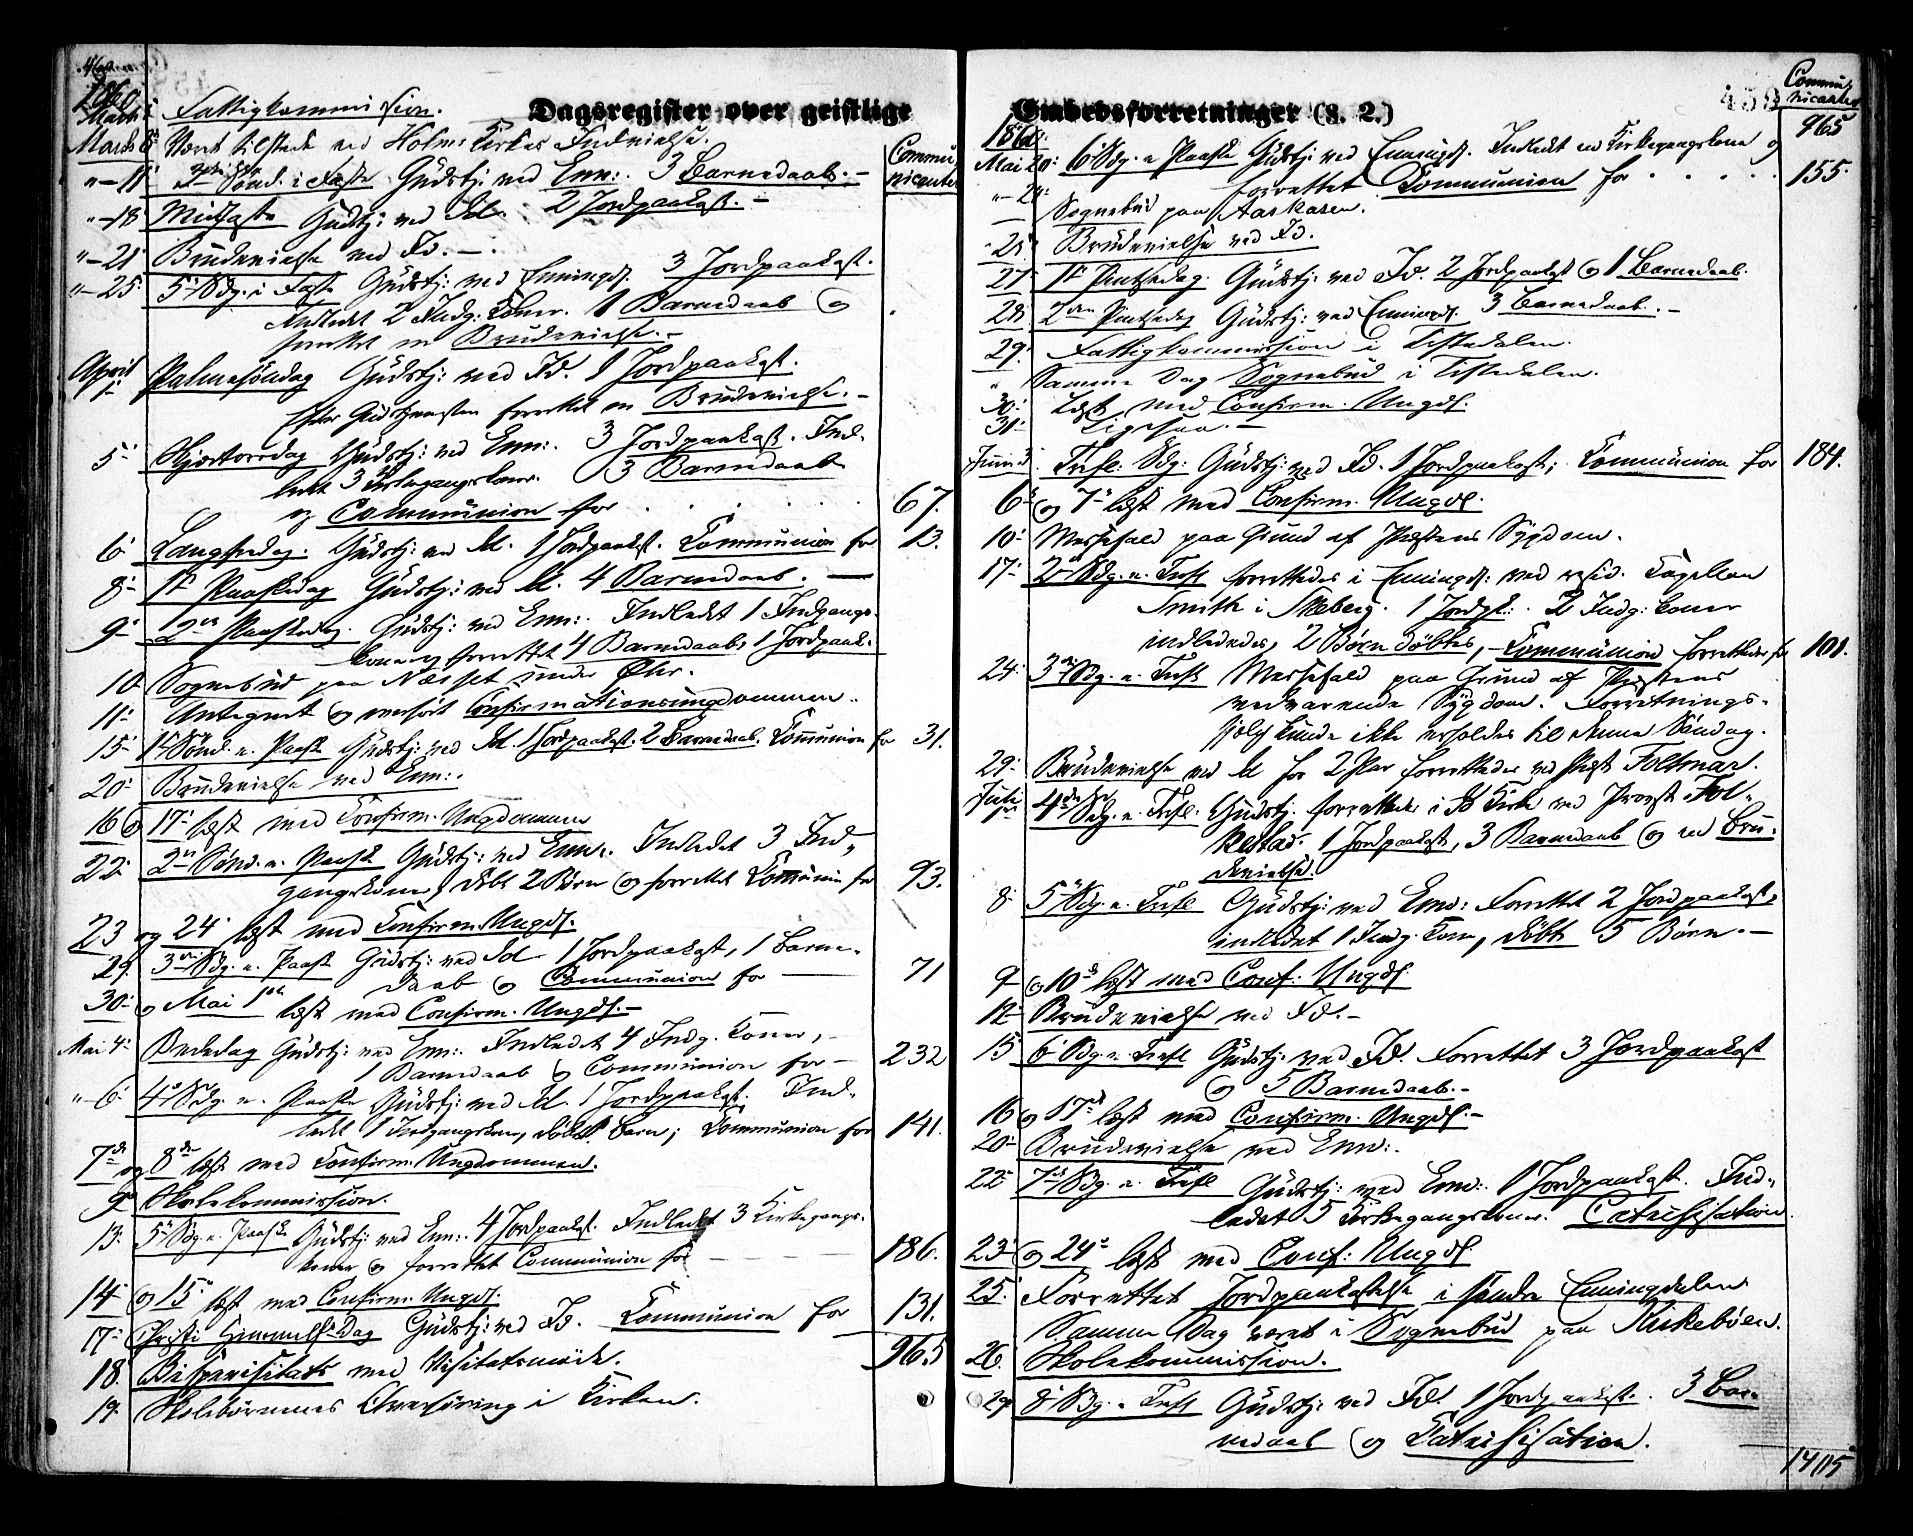 Dagsregister over geistlige
1860
Marts Fattigkommission.
Marts 6 Været tilstede ved Holms Kirkes Indvielse.
Commu-
nicanter
"-11 Sönd. i Faste Gudstj: ved Enn:. 3 Barnedaab.-
"-18 Midfaste Gudstj: ved Id. 2 Jordpaakast.-
"-21 Brudevielse ved Id.-
"-25 5 Sdg. i Faste Gudstj: ved Enningd. 3 Jordpaakast.
Indledt 2 Indg: Koner. 1 Barnedaab og
forrettet en Brudevielse.-
April 1 Palmesöndag Gudstj: ved Id. 1 Jordpaakast.
Efter Gudstjenesten forrettet en Brudevielse.-
5 Skjærtorsdag Gudstj: ved Enn:. 3 Jordpaakast. Ind-
ledt 3 Kirkegangskoner. 3 Barnedaab
og Communion for 67.
6 Langfredag. Gudstj: ved Id. 1 Jordpaakast. Communion for 13.
8 1st Paaskedag Gudstj: ved Id. 4 Barnedaab.
9 2en Paaskedag. Gudstj: ved Enn:. Indledt 1 Indgangs-
kone og forrettet 4 Barnedaab, 1 Jordpaak.
10 Sognebud paa Næsset under
11 Antegnet og overhört Confirmationsungdommen.
15 1st Sönd. e. Paaske Gudstj: ved Id. 1 Jordpaakast. 2 Barnedaab. Communion for 31.
20 Brudevielse ved Enn:.
16 og 17 læst med Confirm. Ungdommen
22 2en Sönd. e. Paaske Gudstj: ved Enn:. Indledet 3 Ind-
gangskoner, döbt 2 Börn og forrettet Communion for 93.
23 og 24 læst med Confirm. Ungd.
29. 3 Sdg. e. Paaske Gudstj: ved Id 1 Jordpaakast, 1 Barne-
daab og Communion for 71
30 og Mai 1ste læst med Confirm. Ungd.-
Mai 4 Bededag Gudstj: ved Enn:. Indledet 4 Indg. Koner,
1 Barnedaab og Communion for - 232
"-6 4 Sdg. e. Paaske Gudstj: ved Id. 1 Jordpaakast. Ind-
ledt 1 Indgangskone, döbt 1 Barn; Communion for 141.
7de og 8de læst med Confirm. Ungdommen.
9 Skolekommission.
13. 5 Sdg. e. Paaske Gudstj: ved Enn:. 4 Jordpaakast. Indledet 3 Kirkegangs-
koner og forrettet Communion for 186.
14 og 15 læst med Confirm. Ungd.
17 Christi Himmelf. Dag Gudstj: ved Id. Communion for 131.
965
18. Bispevisitats med Visitatsmöde.
19. Skolebörnenes Overhöring i Kirken.
Embedsforretninger (§. 2.)
459
Commu-
nicanter
1860. 965
Mai 20 6 Sdg. e. Paaske Gudstj: ved Enningd. Indledt en Kirkegangskone og
forrettet Communion for 155.
"-24 Sognebud paa Aaskasen.
25 Brudevielse ved Id.
27 1st Pintsedag. Gudstj: ved Id. 2 Jordpaakast og 1 Barnedaab.
28 2den Pintsedag Gudstj: ved Enningd. 3 Barnedaab.-
29. Fattigkommission i Tistedalen.
" Samme Dag Sognebud i Tistedalen.
30 Læst med Confirm. Ungd.
31 Ligesaa.-
Juni 3. Trefl. Sdg: Gudstj: ved Id. 1 Jordpaakast; Communion for 184.
6 og 7 læst med Confirm. Ungd.
10 Messefald paa Grund af Præstens Sygdom.
17 2 Sdg. e. Trefl forrettedes i Enningd: ved resid. Capellan
Smith i Skeberg. 1 Jordpk:. 2 Indg: koner
indledes, 2 Börn döbtes, - Communion forrettedes for 101.
24 3 Sdg. e. Trefl Messefald paa Grund af Præstens
vedvarende Sygdom. Forretnings-
hjelp kunde ikke erholdes til denne Söndag.
29 Brudevielse ved Id for 2 Par forrettedes ved Præst Foltmar.
Juli 1 4de Sdg. e. Trefl. Gudstj: forrettedes i Id Kirke ved Provst Fol-
kestad. 1 Jordpaakast, 3 Barnedaab og en Bru-
devielse.
8 5 Sdg. e. Trefl Gudstj: ved Enn: Forrettet 2 Jordpaakast,
indledet 1 Indg. Kone, döbt 5 Börn.-
9 og 10 læst med Conf: Ungd.
12 Brudevielse ved Id.-
15 6 Sdg. e. Trefl Gudstj: ved Id. Forrettet 3 Jordpaakast
og 3 Barnedaab.-
16 og 17 læst med Confirm. Ungd.-
20 Brudevielse ved Enn:.
22 7 Sdg. e. Trefl Gudstj: ved Enn:. 1 Jordpaakast. Ind-
ledet 5 Kirkegangskoner. Catechisation.
23 og 24 læst med Conf: Ungd.
25. Forrettet Jordpaakastelse i söndre Enningdalen
Samme Dag været i Sognebud paa Kirkeböen.
26. Skolekommission.
29 8 Sdg. e. Trefl Gudstj: ved Id. 1 Jordpaakast. 3 Bar-
nedaab og Catechisation.
1405